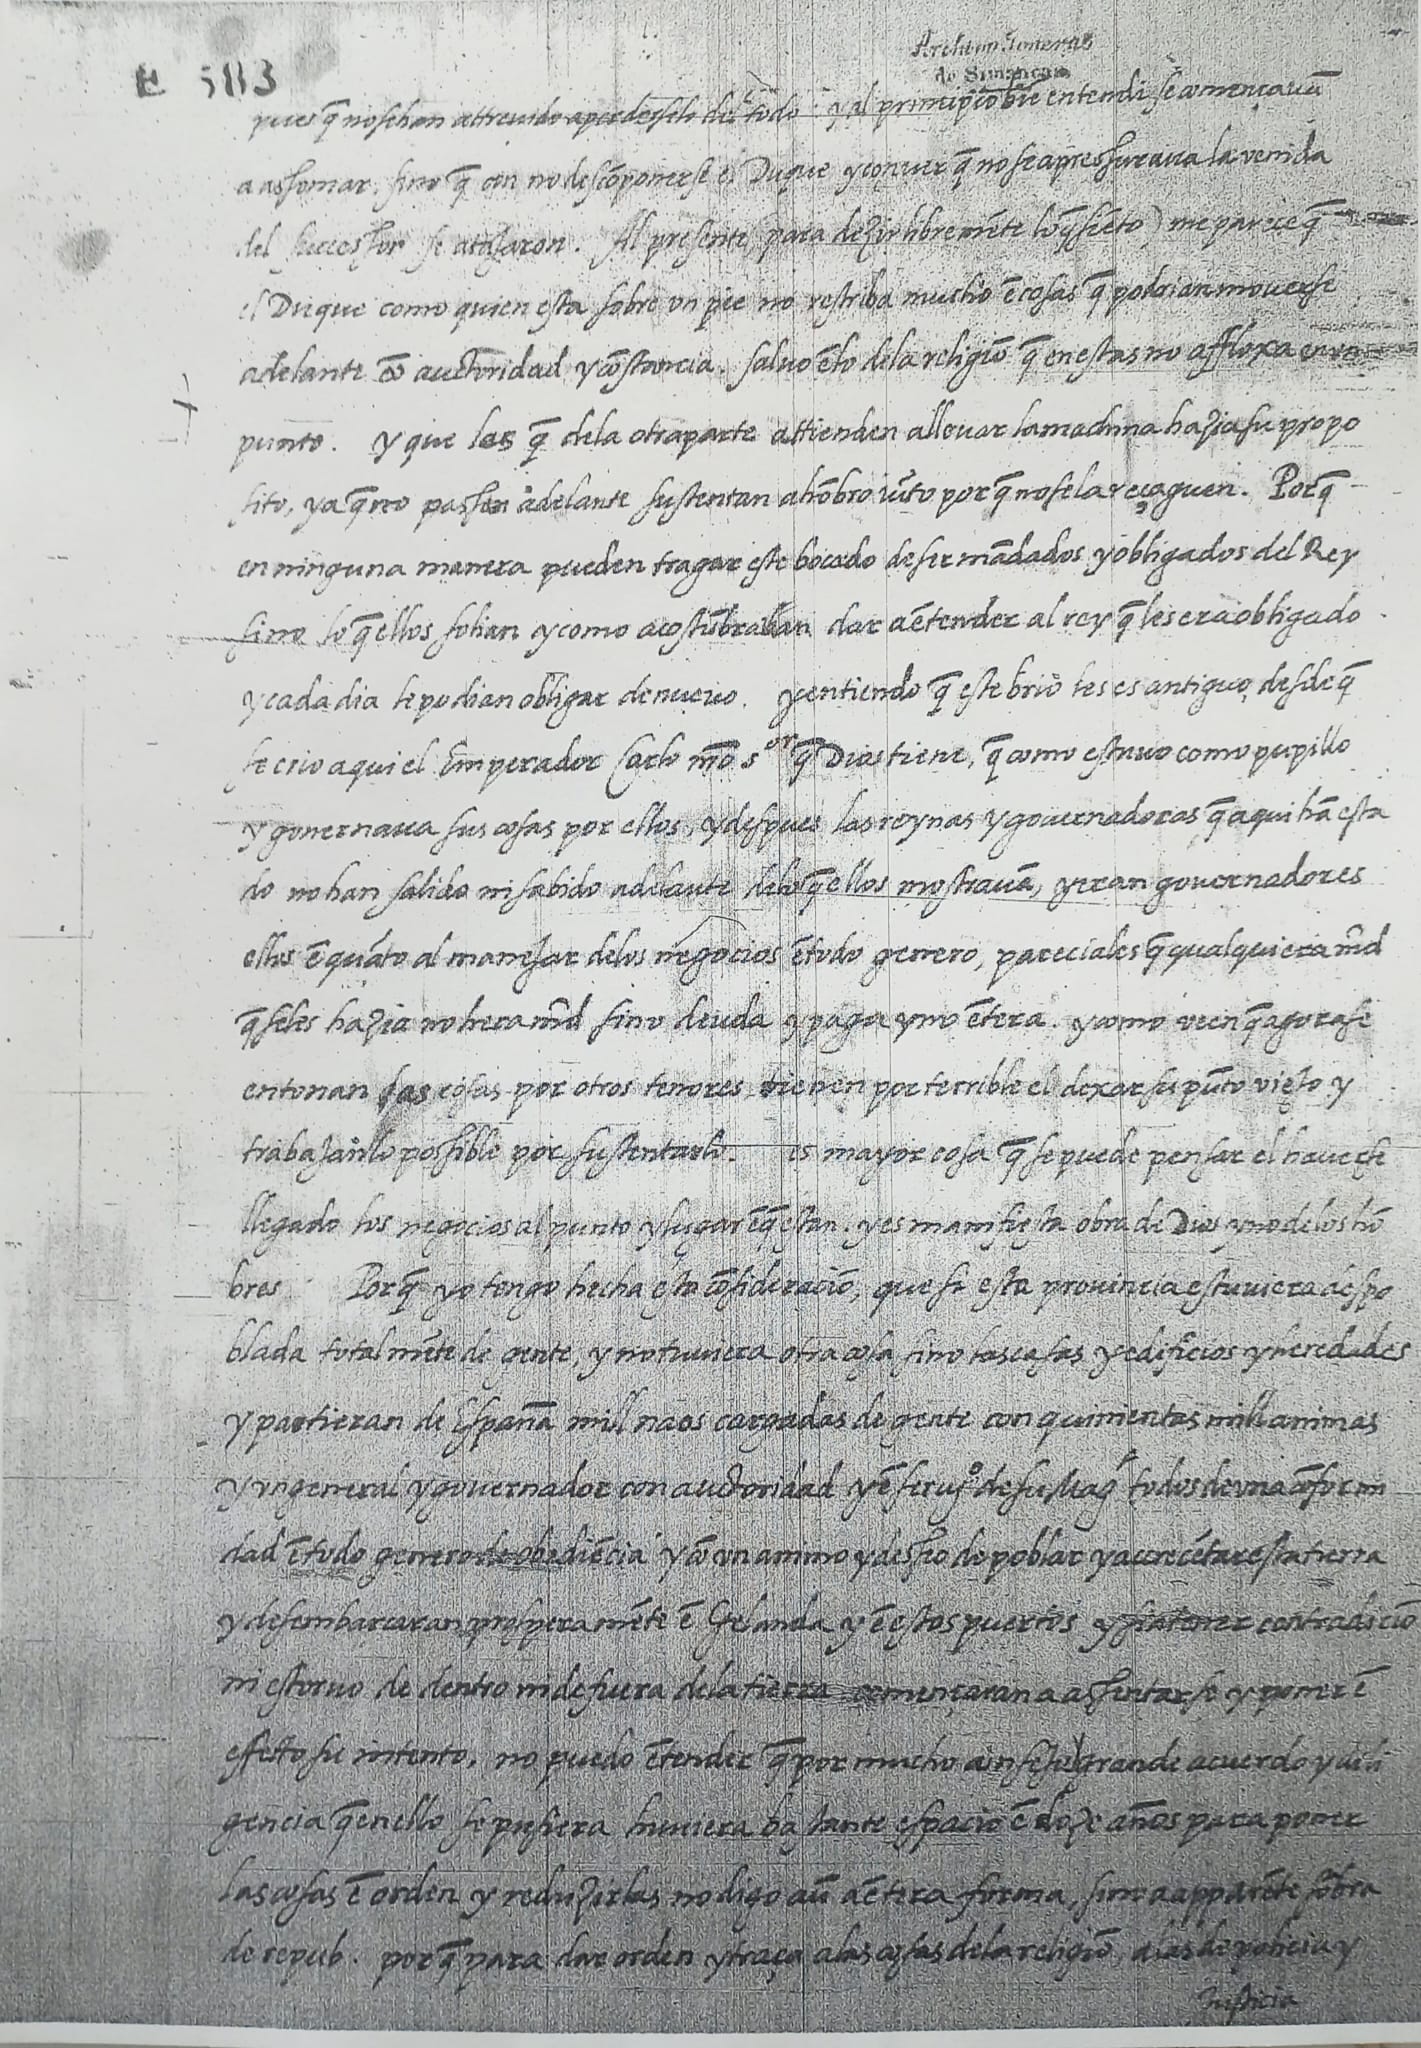 Archivo General
de Simancas
E 583
pues q̃ no se han attrevido a perderselo del todo y al principio biẽ entendi se començavã
a assomar, sino q̃ con no descõponerse el Duque y con ver q̃ no se apressurava la venida
del successor se atajaron. Al presente, para dezir libremẽte lo q̃ siẽto) me parece q̃
el Duque como quien esta sobre un pie no restriba mucho ẽ cosas q̃ podrian moverse
adelante cõ auctoridad y cõstancia. salvo ẽ lo dela religiõ q̃ en estas no affloxa en un
punto. y que los q̃ dela otra parte attienden allevar la machina hazia su propo
sito, ya q̃ no passen adelante sustentan al hõbro porq̃ no se la reçaguen. Porq̃
en ninguna manera pueden tragar este bocado de ser mãdados y obligados del Rey
sino lo q̃ ellos solian y como acostũbraban dar a ẽtender al rey q̃ les era obligado
y cada dia le podian obligar de nuevo. y entiendo q̃ este brio les es antiguo, desde q̃
se crio aqui el Emperador Carlo nr̃o sor q̃ Dios tiene, q̃ como estuvo como pupillo
y governava sus cosas por ellos, y despues las reynas y governadoras q̃ aqui hã esta
do no han salido ni sabido adelante delo q̃ ellos mostravã, y eran governadores
ellos ẽ quãto al manejar delos negocios ẽ todo genero, pareciales q̃ qualquiera mr̃d
q̃ se les hazia no hera mr̃d sino deuda y paga y no ẽtera. y como veen q̃ agora se
entonan las cosas por otros tenores tienen por terrible el dexar su pũto viejo y
trabajã lo possible por sustentarlo. es mayor cosa q̃ se puede pensar el haverse
llegado los negocios al punto y lugar ẽ q̃ estan. y es manifiesta obra de Dios y no de los hõ
bres Porq̃ yo tengo hecha esta cõsideraciõ, que si esta provincia estuviera despo
blada totalmẽte de gente, y no tuviera otra cosa sino las casas y edificios y heredades
y partieran de España mill naos cargadas de gente con quinientas mill animas
y un general y governador con auctoridad y ẽ serviº de su Magd todos de una cõformi
dad ẽ todo genero de obediẽcia y cõ un animo y desseo de poblar y accrecẽtar esta tierra
y desembarcaran prosperamẽte ẽ Gelanda y ẽ estos puertos y sin tener contradiciõ
ni estorvo de dentro ni de fuera dela tierra començaran a assentarse y poner ẽ
effecto su intento, no puedo ẽtender q̃ por mucho consejo grande acuerdo y dili
gencia q̃ en ello se pusiera huviera bastante espacio ẽ doze años para poner
las cosas ẽ orden y reduzirlas no digo aũ a ẽtera forma, sino a apparẽte sõbra
de repub. porq̃ para dar orden y traça a las cosas de la religiõ, a las de policia y
Justicia